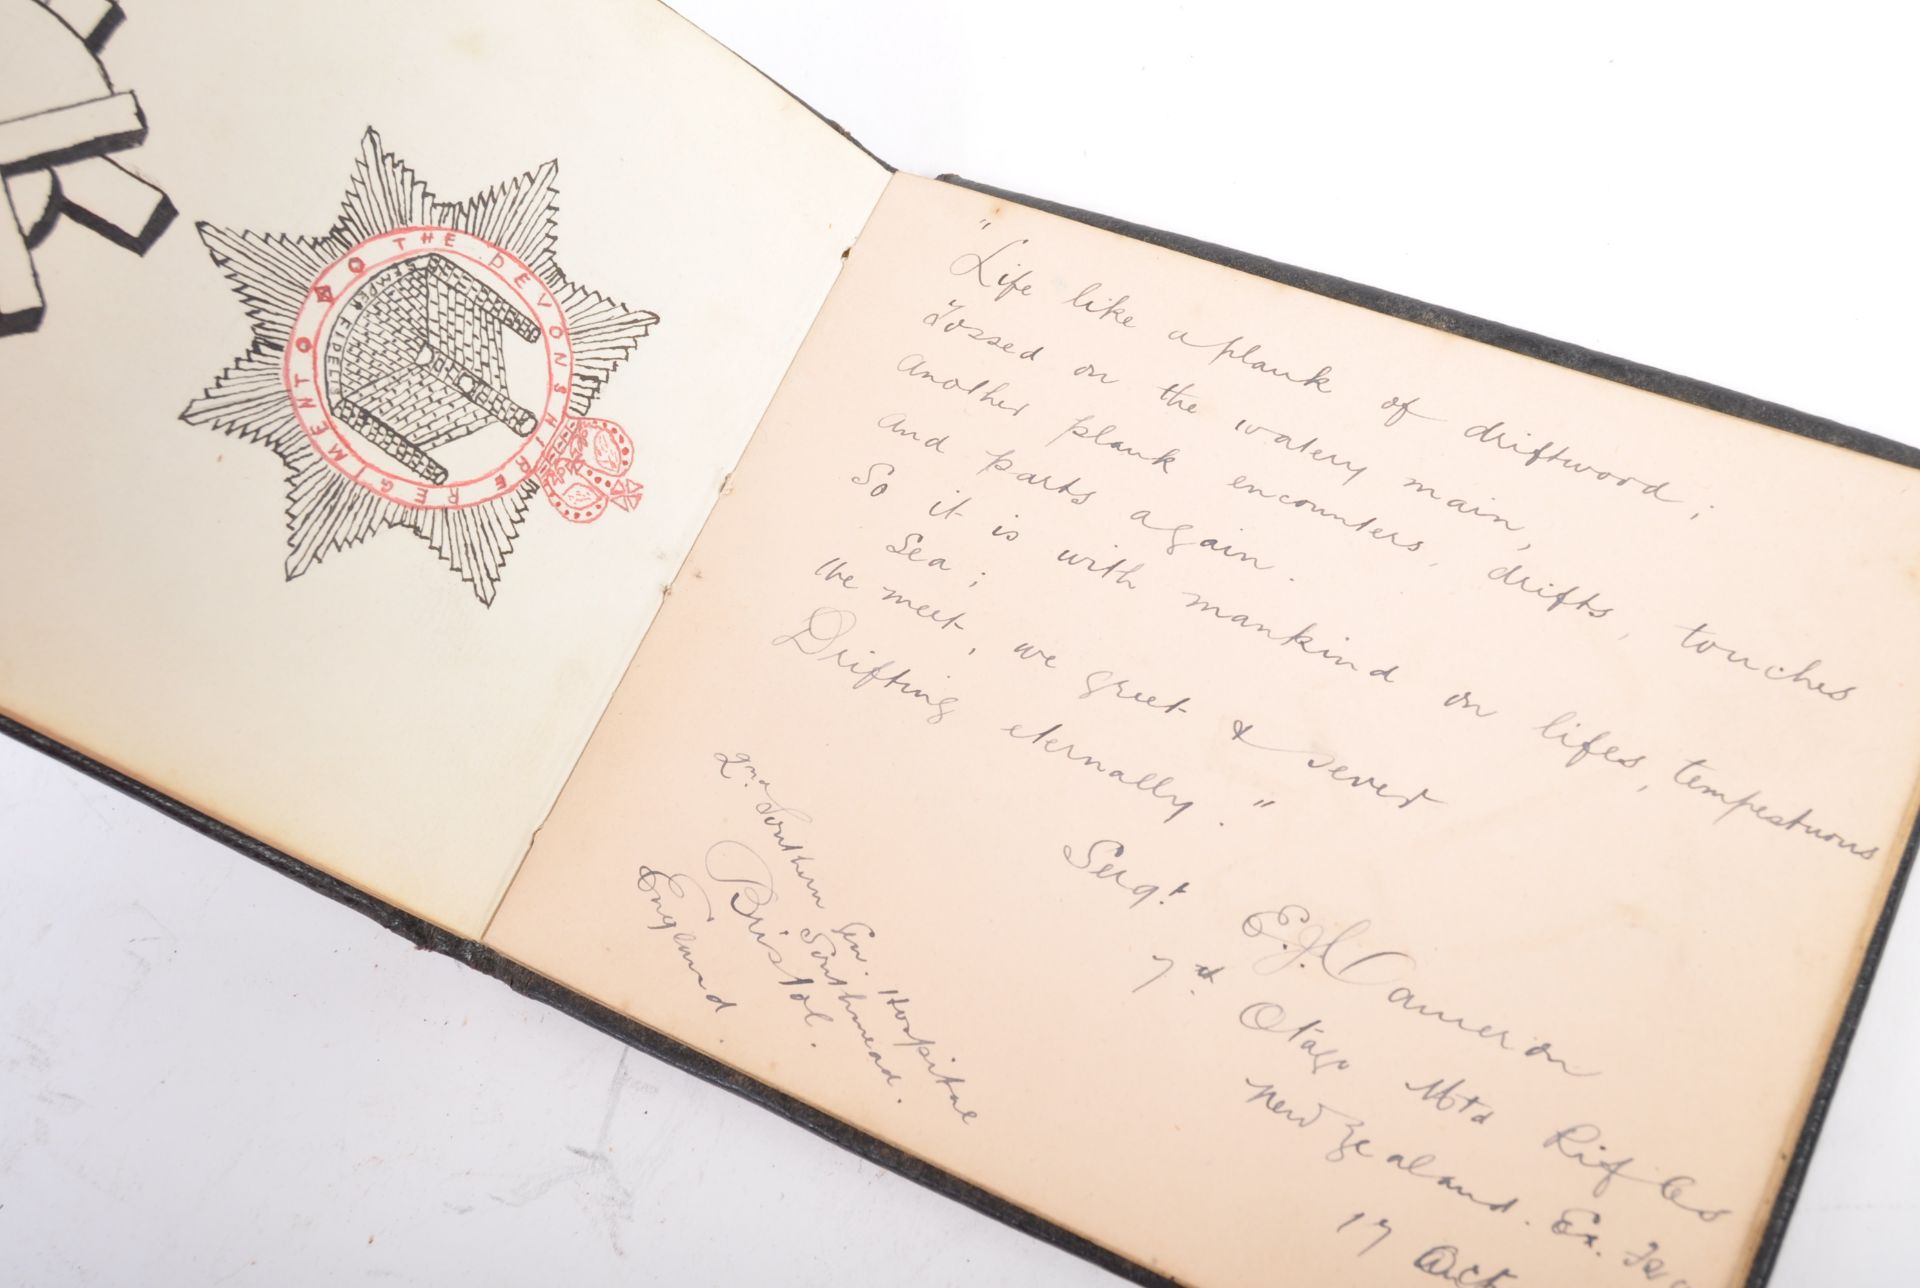 THE DEVONSHIRE REGIMENT
SEMPER FIDELIS
"Life like a plank of driftwood;
Tossed on the watery main,
Another plank encounters, drifts, touches
And parts again.
So it is with mankind on lifes, tempestuous
Sea;
We meet, we greet & sever
Drifting eternally."
Sergt E.J. Cameron
7th Otago Mtd Rifles
New Zealand. Ex.
17 Oct
2nd Southern Gen. Hospital
Southmead.
Bristol.
England.